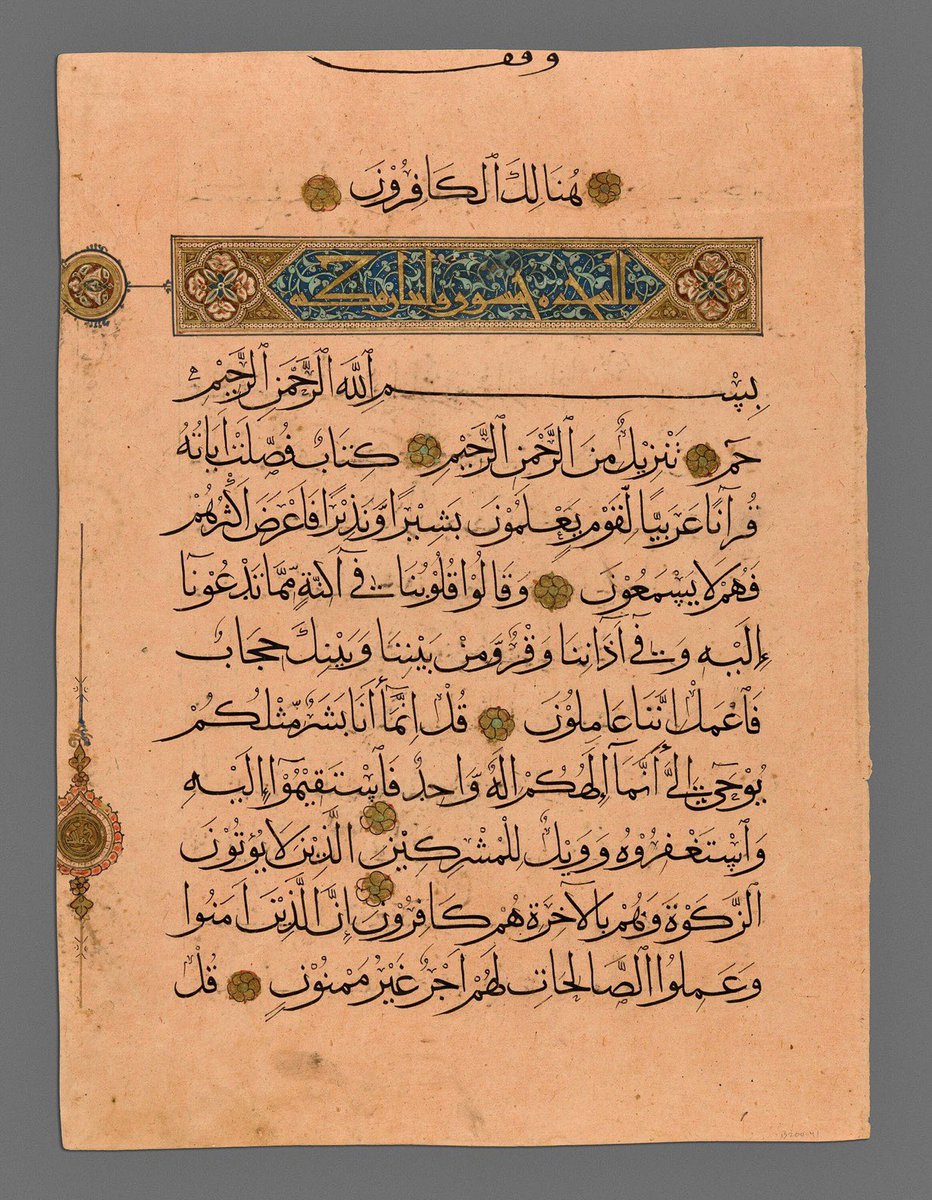 وقف
هُنَالِكَ ٱلْكَافِرُوْنَ
السجده خمسون مكيه
بِسْمِ ٱللَّهِ ٱلرَّحْمٰنِ ٱلرَّحِيْمِ
حٰم تَنْزِيْلٌ مِنَ ٱلرَّحْمٰنِ ٱلرَّحِيْمِ كِتَابٌ فُصِّلَتْ اٰيَاتُهُ
قُرْآنًا عَرَبِيًّا لِّقَوْمٍ يَعْلَمُوْنَ بَشِيْرًا وَّنَذِيْرًا فَاَعْرَضَ اَكْثَرُهُمْ
فَهُمْ لَا يَسْمَعُوْنَ وَقَالُوْا قُلُوْبُنَا فِيْ اَكِنَّةٍ مِّمَّا تَدْعُوْنَآ
إِلَيْهِ وَفِيْ آذَانِنَا وَقْرٌ وَّمِنْ بَيْنِنَا وَبَيْنِكَ حِجَابٌ
فَٱعْمَلْ اِنَّنَا عَامِلُوْنَ قُلْ اِنَّمَآ أَنَا بَشَرٌ مِّثْلُكُمْ
يُوْحٰىٓ اِلَيَّ أَنَّمَآ اِلٰهُكُمْ اِلٰهٌ وَّاحِدٌ فَٱسْتَقِيْمُوْٓا اِلَيْهِ
وَٱسْتَغْفِرُوْهُ وَوَيْلٌ لِلْمُشْرِكِيْنَ الَّذِيْنَ لَا يُؤْتُوْنَ
الزَّكٰوةَ وَهُمْ بِالْآخِرَةِ هُمْ كَافِرُوْنَ اِنَّ الَّذِيْنَ اٰمَنُوا
وَعَمِلُوا الصَّالِحَاتِ لَهُمْ اَجْرٌ غَيْرُ مَمْنُوْنٍ قُلْ